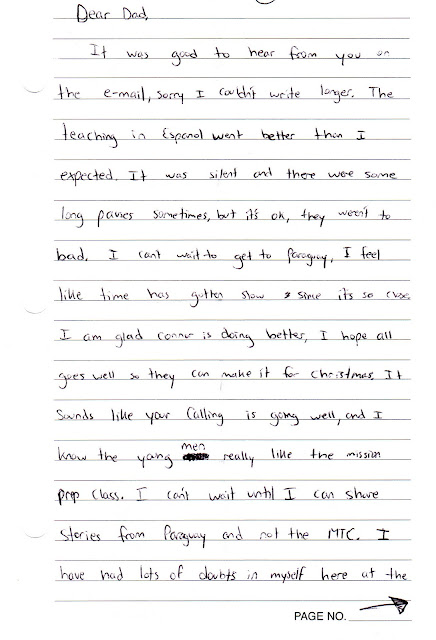 Dear Dad,
It was good to hear from you on
the e-mail, sorry I couldn't write longer. The
teaching in Espanol went better than I
expected. It was silent and there were some
long pauses sometimes, but it's ok, they weren't to
bad. I cant wait to get to Paraguay, I feel
like time has gotten slow & since its so close
I am glad Connor is doing better, I hope all
goes well so they can make it for Christmas. It
Sounds like your Calling is going well, and I
know the yong men really like the mission
prep class. I can't wait until I can share
Stories from Paraguay and not the MTC. I
have had lots of doubts in myself here at the
PAGE NO.